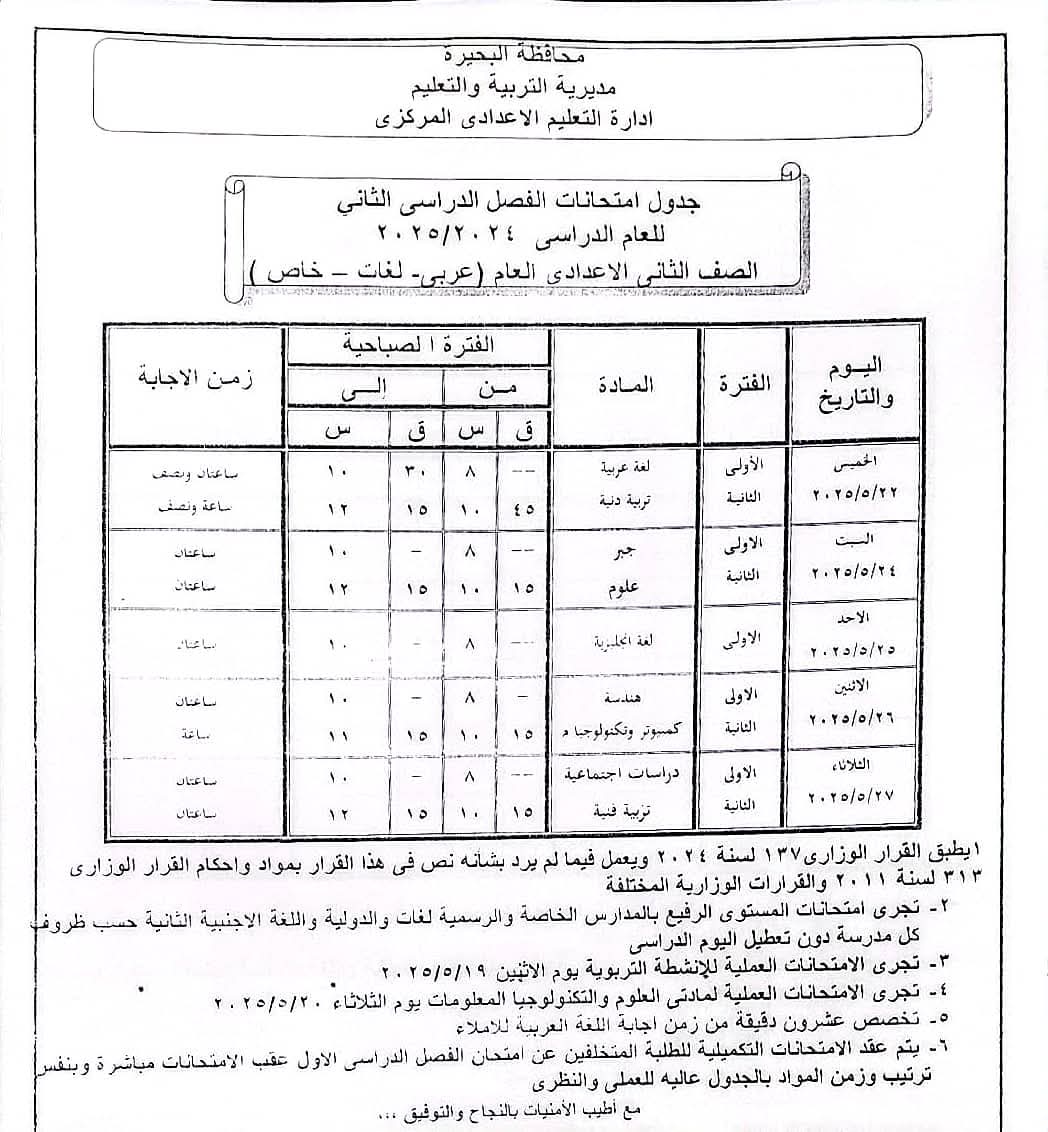 محافظة البحيرة
مديرية التربية والتعليم
ادارة التعليم الاعدادى المركزى
جدول امتحانات الفصل الدراسى الثاني
للعام الدراسى ٢٠٢٥/٢٠٢٤
الصف الثانى الاعدادى العام (عربى- لغات – خاص )
اليوم والتاريخ الفترة المادة الفترة الصباحية زمن الاجابة
من إلى
ق س ق س
الخميس ٢٠٢٥/٥/٢٢
الأولى لغة عربية --- ٨ ٣٠ ١٠ ساعتان ونصف
الثانية تربية دنية ٤٥ ١٠ ١٥ ١٢ ساعة ونصف
السبت ٢٠٢٥/٥/٢٤
الاولى جبر --- ٨ - ١٠ ساعتان
الثانية علوم ١٥ ١٠ ١٥ ١٢ ساعتان
الاحد ٢٠٢٥/٥/٢٥
الاولى لغة انجليزية --- ٨ - ١٠ ساعتان
الاثنين ٢٠٢٥/٥/٢٦
الاولى هندسة - ٨ - ١٠ ساعتان
الثانية كمبيوتر وتكنولوجيا م ١٥ ١٠ ١٥ ١١ ساعة
الثلاثاء ٢٠٢٥/٥/٢٧
الاولى دراسات اجتماعية --- ٨ - ١٠ ساعتان
الثانية تربية فنية ١٥ ١٠ ١٥ ١٢ ساعتان
١يطبق القرار الوزارى١٣٧ لسنة ٢٠٢٤ ويعمل فيما لم يرد بشأنه نص فى هذا القرار بمواد واحكام القرار الوزارى
٣١٣ لسنة ٢٠١١ والقرارات الوزارية المختلفة
٢- تجرى امتحانات المستوى الرفيع بالمدارس الخاصة والرسمية لغات والدولية واللغة الاجنبية الثانية حسب ظروف
كل مدرسة دون تعطيل اليوم الدراسى
٣- تجرى الامتحانات العملية للإنشطة التربوية يوم الاثنين ٢٠٢٥/٥/١٩
٤- تجرى الامتحانات العملية لمادتى العلوم والتكنولوجيا المعلومات يوم الثلاثاء ٢٠٢٥/٥/٢٠
٥- تخصص عشرون دقيقة من زمن اجابة اللغة العربية للاملاء
٦- يتم عقد الامتحانات التكميلية للطلبة المتخلفين عن امتحان الفصل الدراسى الاول عقب الامتحانات مباشرة وبنفس
ترتيب وزمن المواد بالجدول عاليه للعملى والنظرى
مع أطيب الأمنيات بالنجاح والتوفيق ...